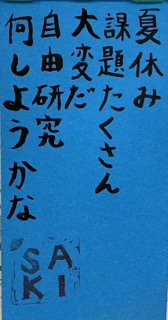 夏休み
課題たくさん
大変だ
自由研究
何しようかな
SA
KI